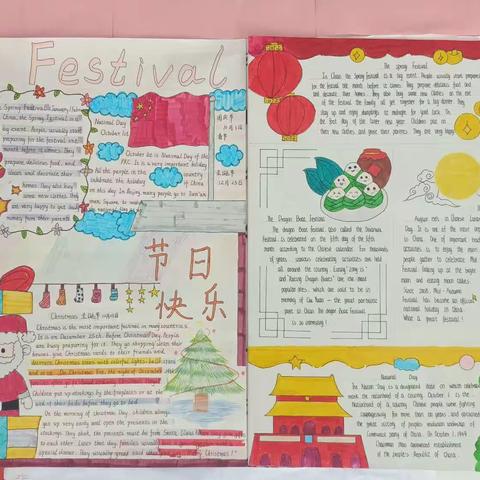 Festival
Spring Festival is January
China, the Spring Festival is a
big event. People usually start
preparing for the festival one
month before it comes. They
prepare delicious food, and
clean and decorate their
homes. They also buy
some new clothes. They
are very happy to get lucky
money from their parents
National Day
October 1st
October 1st is National Day of the
PRC. It is a very important holiday
All the people in the country
celebrate the holiday of China
on this day. In Beijing many people go to Tian'an
men Square to watch
国庆节
10月1日
春节
圣诞节
12月25日
节日
快乐
Christmas 圣诞节 12月25日
Christmas is the most important festival in many countries.
It is on December 25th. Before Christmas Day, People
are busy preparing for it. They go shopping, clean their
houses, give Christmas cards to their friends and
decorate Christmas trees with colorful lights, balls, stars
and so on. On Christmas Eve, the night of December
Children put up stockings by the fireplaces or at the
end of their beds before they go to bed.
On the morning of Christmas Day, children always
get up very early and open the presents in the
stockings. They think the presents must be from Santa Claus
to each other. Later that day, families would
special dinner. They usually spend
Christmas!"
The Spring Festival
In China, the Spring Festival is a big event. People usually start preparing
for the festival one month before it comes. They prepare delicious food and
and decorate their homes. They also buy some new clothes. At the eve
of the festival, the family all gets together for a big dinner. They
stay up and enjoy dumplings at midnight for good luck. On
the first day of the lunar new year Children put on
their new clothes, and greet their parents. They are very happy
The Dragon Boat Festival
The dragon Boat Festival, also called the Duanwu
Festival, is celebrated on the fifth day of the fifth
month according to the Chinese calendar. For thousands
of years, various celebrating activities are held
all around the country. Eating Zong zi
and Racing Dragon Boats" are the most
popular ones, which are said to be in
memory of Qu Yuan - the great patriotic
poet in China. The dragon Boat Festival
is so interesting!
August 15th is Chinese Lunar
Day. It is one of the most important
in China. One of important
activities is to enjoy the moon
people gather to celebrate Mid-
Festival, looking up at the bright
moon and eating moon cakes.
Since 2008, Mid-Autumn
Festival has become an official
national holiday in China.
What a great festival!
National Day
The Nation Day is a designated date on which celebrations
mark the nationhood of a country. October 1 is the
Nationhood of a country. Chinese people were fighting
courageously for more than 100 years, and obtained
the great victory of people's revolution under the
Communist party of China. On October 1, 1949
Chairman Mao announced establishment
of the people's Republic of China.